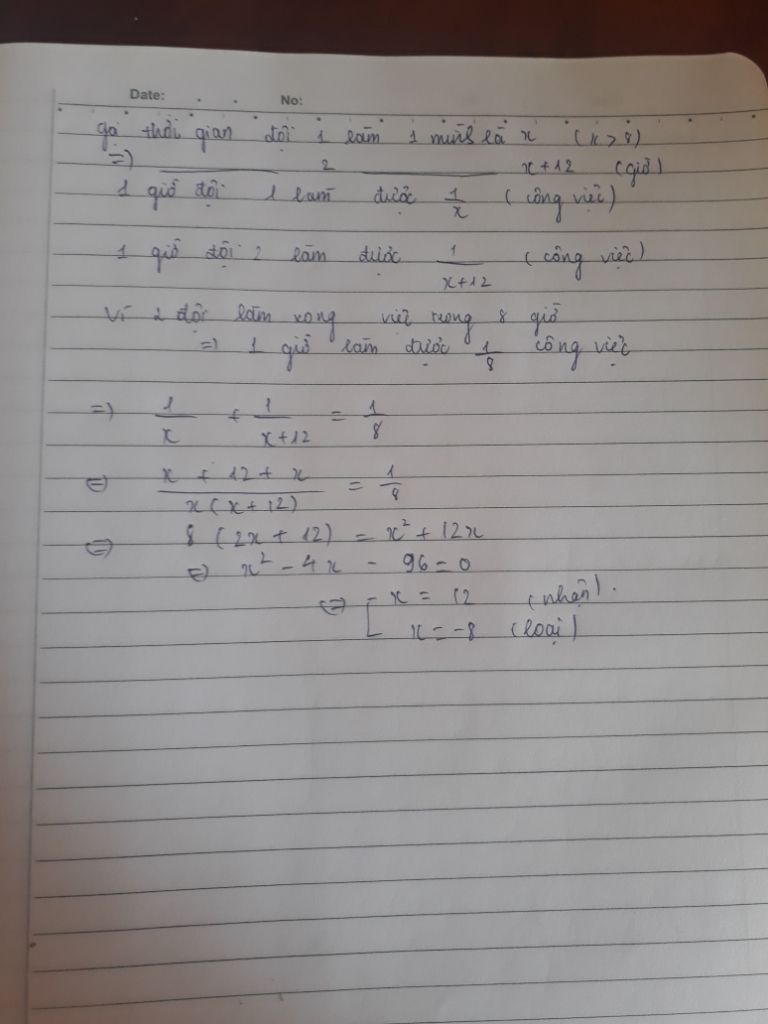 Date: . . No:
gọi thời gian đội 1 làm 1 mình là x (x > 8)
=) ——— 2 ——— x+12 (giờ)
1 giờ đội 1 làm được 1/x (công việc)
1 giờ đội 2 làm được 1/(x+12) (công việc)
Vì 2 đội làm xong việc trong 8 giờ
=) 1 giờ làm được 1/8 công việc
=) 1/x + 1/(x+12) = 1/8
⇔ (x + 12 + x)/(x(x+12)) = 1/8
⇔ 8 (2x + 12) = x² + 12x
⇔ x² - 4x - 96 = 0
⇔ [ x = 12 (nhận).
x = -8 (loại)